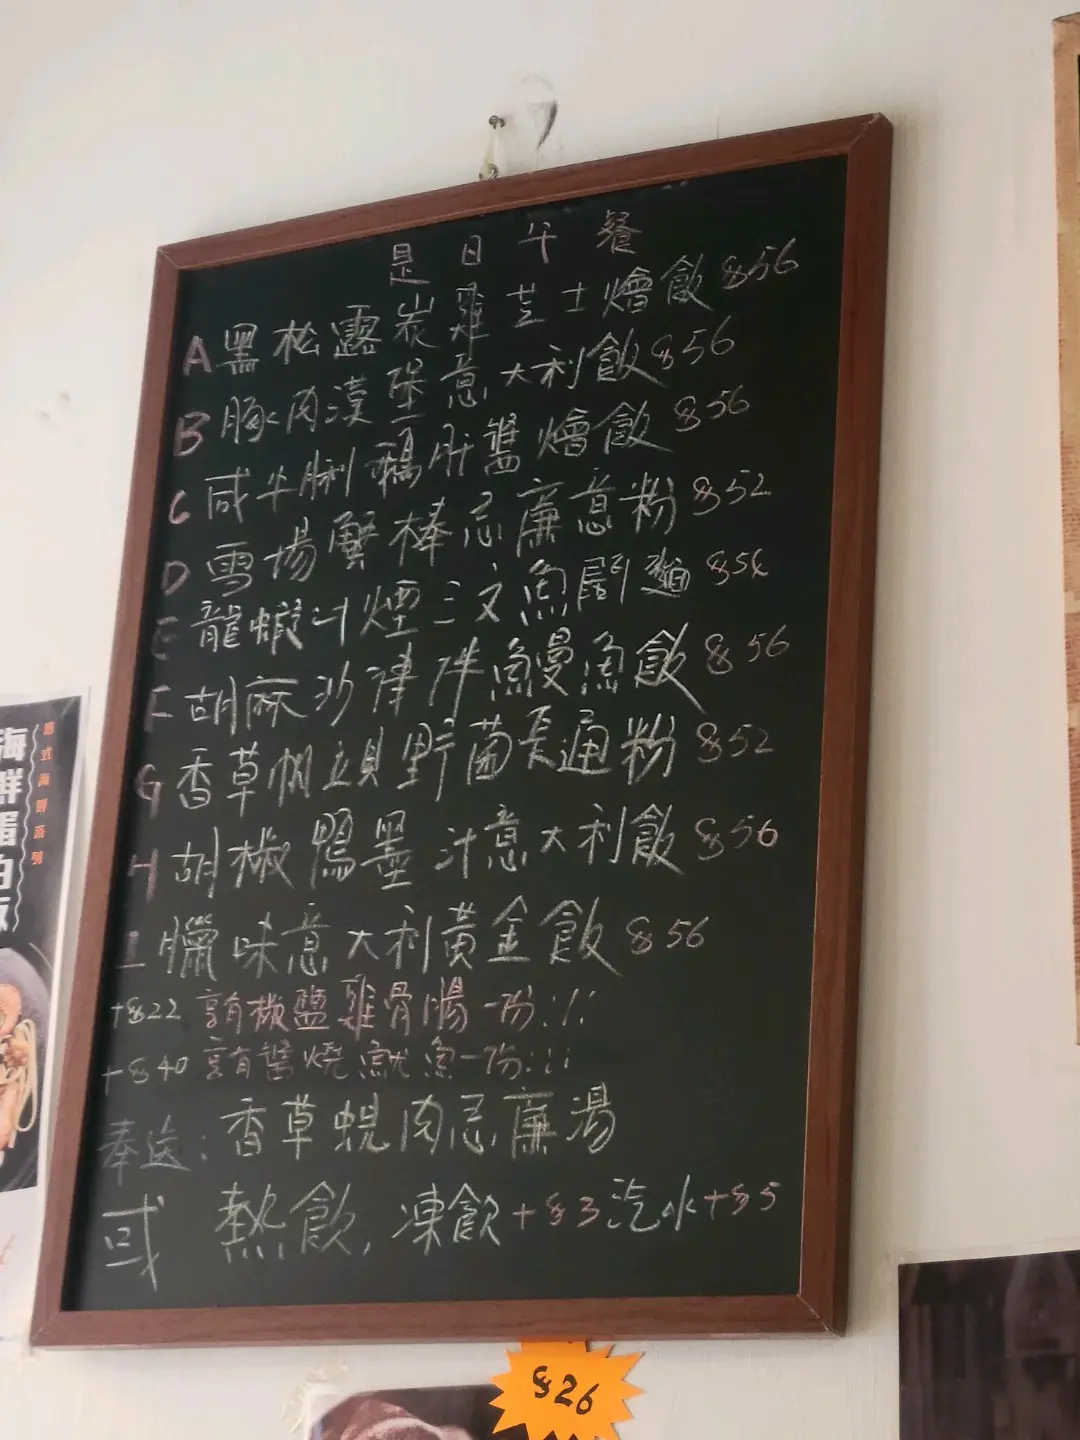 是日午餐
A 黑松露炭雞芝士燴飯 $56
B 豚肉漢堡意大利飯 $56
C 咸牛脷鵝肝醬燴飯 $56
D 雪場蟹棒忌廉意粉 $52
E 龍蝦汁煙三文魚闊麵 $54
F 胡麻沙律伴鰻魚飯 $56
G 香草帆立貝野菌長通粉 $52
H 胡椒鴨墨汁意大利飯 $56
I 臘味意大利黃金飯 $56
+$22 享有椒鹽雞骨腸一份!!!
+$40 享有醬燒魷魚一份!!!
奉送: 香草蜆肉忌廉湯
或 熱飲, 凍飲+$3 汽水+$5
$26